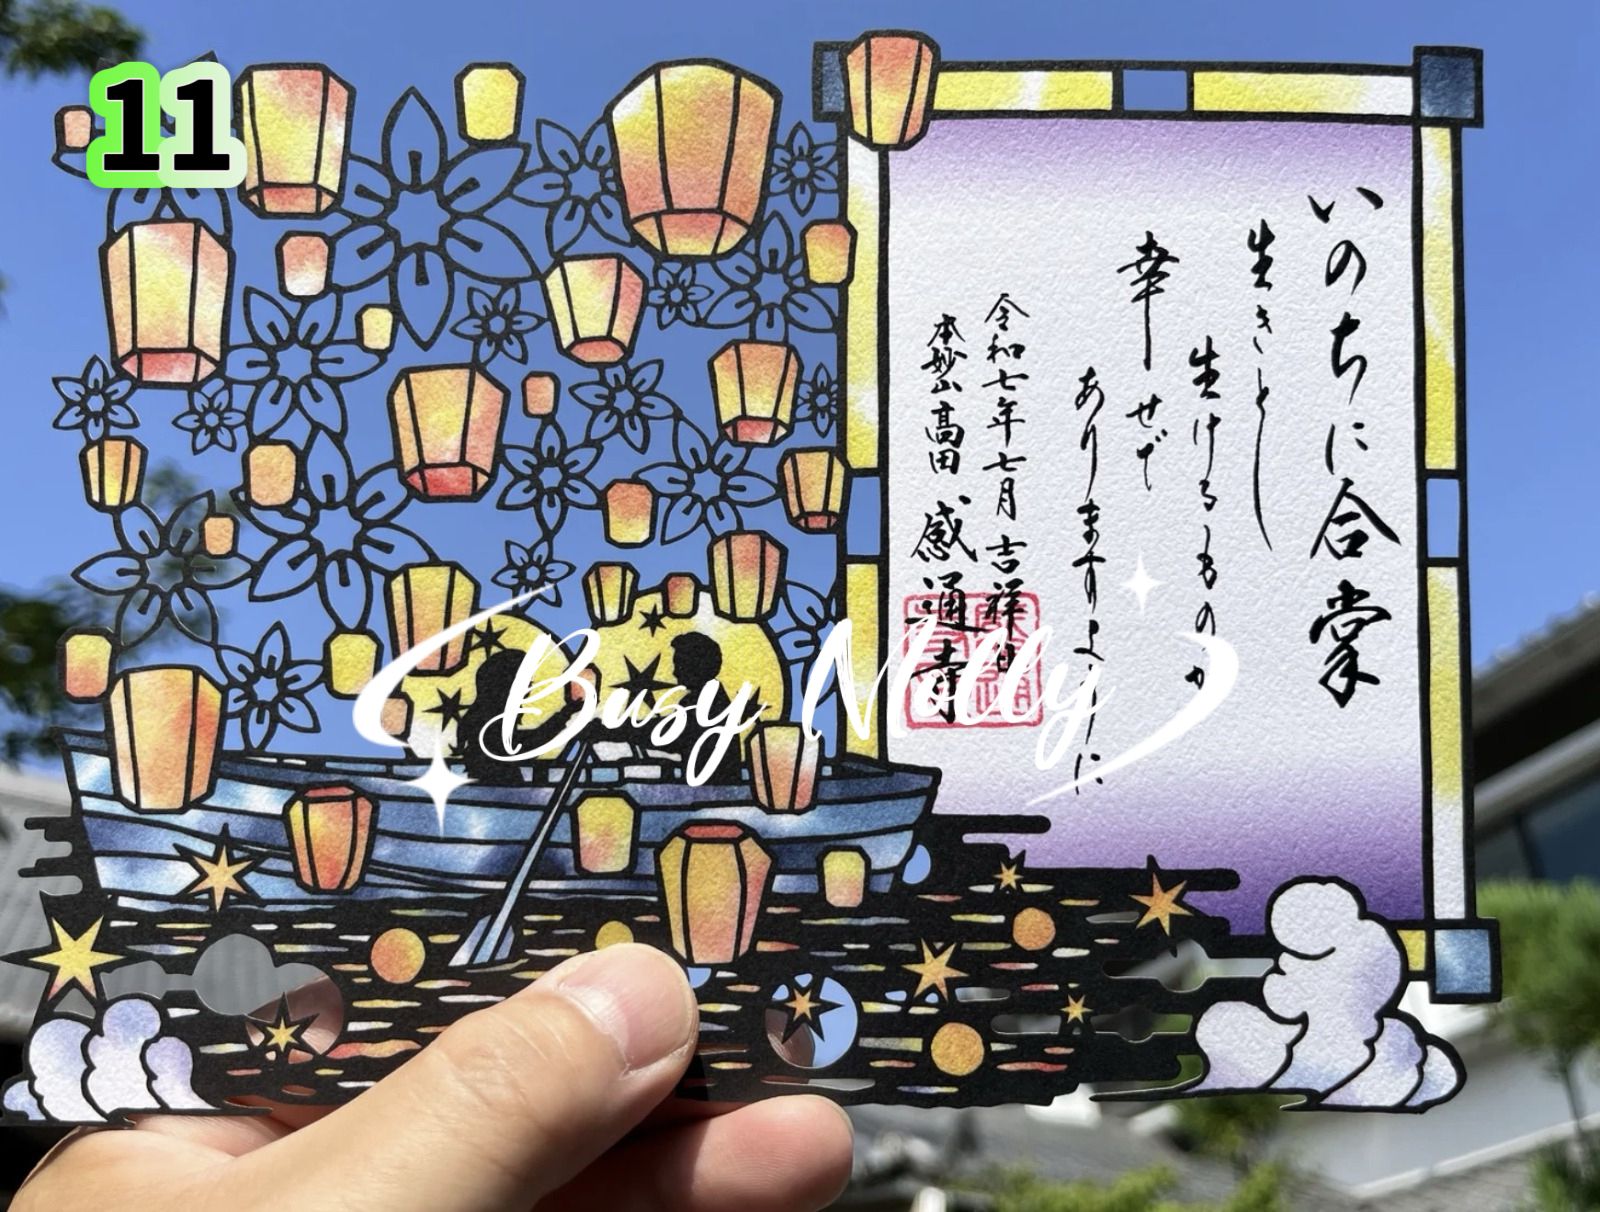 11
いのちに合掌
生きとし
生けるものが
幸せで
ありますように
令和七年七月 吉祥日
本妙山 高田 感通寺
Busy Molly